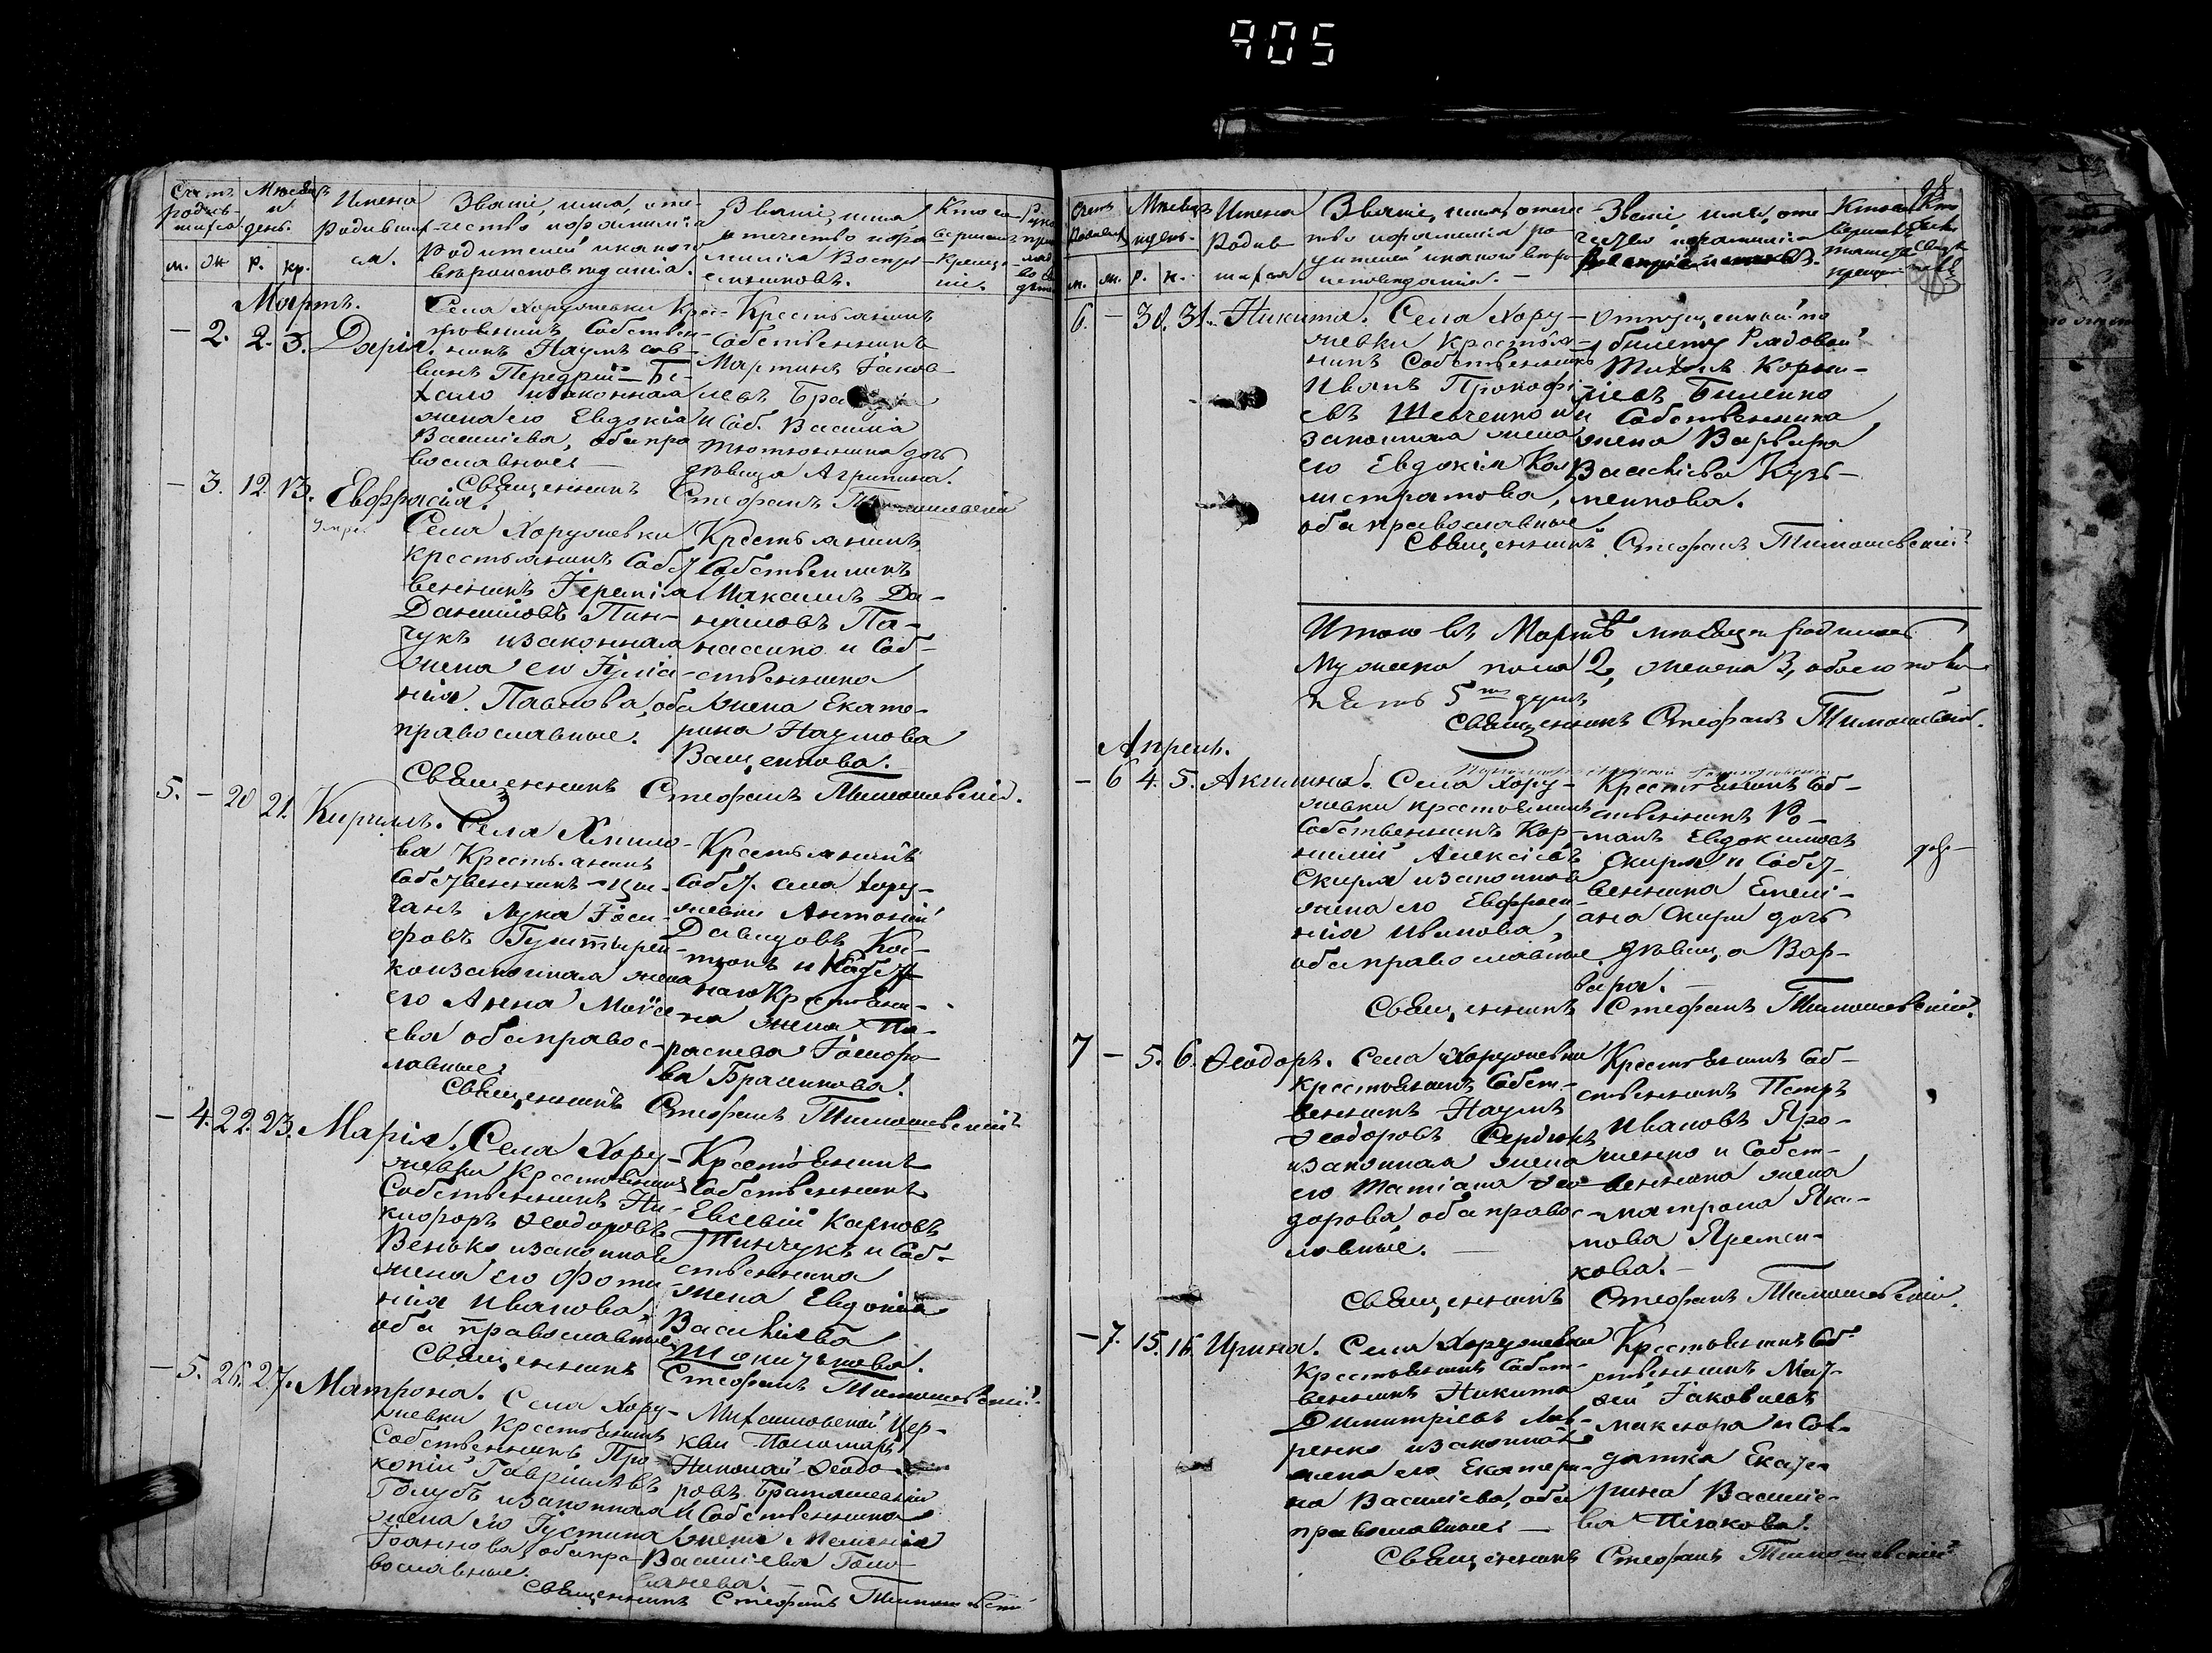 905
Счетъ родив-шихся
Мѣсяцъ и день.
Имена родивших-ся.
Званіе, имя, оте-
чество и фамилія
родителей и какого
вѣроисповѣданія.
Званіе, имя,
отечество и фа-
милія воспрі-
емниковъ.
Кто со-
вершалъ
креще-
ніе.
м. ж р. кр.
Мартъ.
- 2. 2. 3. Дарія.
Села Хоружевки Крес-
тьянинъ Собствен-
никъ Наумъ
Передрій
и законная
жена его Евдокія
Василіева, оба пра
вославные
Крестьянинъ
Собственникъ
Мартинъ Іаков-
левъ
и Соб. Василія
Тютюнника дочь
дѣвица Агрипина.
Священникъ Стефанъ
- 3. 12. 13. Евфрасія.
умре.
Села Хоружевки
Крестьянинъ Собст
венникъ Іеремія
Даниловъ Пин-
чукъ и законная
жена его Іуліа-
нія Павлова, оба
православные.
Крестьянинъ
Собственникъ
Максимъ Да-
ніиловъ Па-
насенко и Соб-
ственника
жена Екате-
рина Наумова
Ващенкова.
Священникъ Стефанъ Тимошевскій.
5. - 20 21. Кириллъ.
Села Хмило-
ва Крестьянинъ
Собственникъ
Лука Іоси-
фовъ
ко и законная жена
его Анна Моисе-
ева оба правос-
лавные.
Крестьянинъ
Собст. села Хору-
жевки Антоній
Давидовъ
и
Крестьяни-
на жена Па-
раскева
ва
Священникъ Стефанъ Тимошевскій
- 4. 22. 23. Марія.
Села Хору-
жевки Крестьянинъ
Собственникъ Ни-
кифоръ Ѳеодоровъ
Венько и законная
жена его Фоти-
нія Иванова,
оба православные
Крестьянинъ
Собственникъ
Евсевій Карповъ
Пинчукъ и Соб-
ственника
жена Евдокія
Василіева
Священникъ Стефанъ Тимошевскій.
- 5. 26. 27. Матрона.
Села Хору-
жевки Крестьянинъ
Собственникъ Про-
копій Гавріилевъ
Голубъ и законная
жена его Іустина
Іоаннова, оба пра-
вославные.
Михайловской Цер-
кви Пономарь
Николай Ѳеодо-
ровъ
и Собственника
жена Меланія
Василіева
Священникъ Стефанъ Тимошевскій
Счетъ
Мѣсяцъ
и день.
Имена
Родив-
шихся
Званіе, имя, отече
ство и фамилія ро
дителей и какого вѣро
исповѣданія.
Званіе, имя, оте
чество и фамилія
воспріемниковъ.
м. ж. р. к.
98
6. - 30. 31. Никита.
Села Хору-
жевки Крестья-
нинъ Собственникъ
Иванъ Прокофі-
евъ Шевченко и
законная жена
его Евдокія Кали
стратова,
оба православные
Отпущенный по
билету Рядовой
Корни-
ліевъ Биленко
и Собственника
жена Варвара
Василіева Кузь-
менкова.
Священникъ Стефанъ Тимошевскій
Итого въ Мартѣ мѣсяцѣ родилось
Мужеска пола 2, женска 3, обоего пола
пять 5 душъ
Священникъ Стефанъ Тимошевскій.
Апрель.
- 6 4. 5. Акилина.
Села Хору-
жевки крестьянинъ
Собственникъ Кор-
нилій Алексіевъ
Скирда и законная
жена его Евфроси-
нія Иванова,
оба православные
Крестьянинъ Соб-
ственникъ Ро-
манъ Евдокимовъ
и Собст-
венника Емели-
ана дочь
дѣвица Вар-
вара.
Священникъ Стефанъ Тимошевскій.
7 - 5. 6. Ѳеодоръ.
Села Хоружевки
Крестьянинъ Собст-
венникъ Наумъ
Ѳеодоровъ Сердюкъ
и законная жена
его Татіана Ѳео-
дорова, оба правос-
лавные.
Крестьянинъ Соб-
ственникъ Петръ
Ивановъ Яро-
шенко и Собст-
венника жена
Матрона Яки-
мова Яремен-
кова.
Священникъ Стефанъ Тимошевскій.
- 7. 15. 16. Ирина.
Села Хоружевки
Крестьянинъ Собст-
венникъ Никита
Димитріевъ Лав-
ренко и законная
жена его Екатери-
на Василіева, оба
православные
Крестьянинъ Соб-
ственникъ Мат-
ѳей Іаковлевъ
и Сол-
датка Екате-
рина Василіе-
ва
Священникъ Стефанъ Тимошевскій